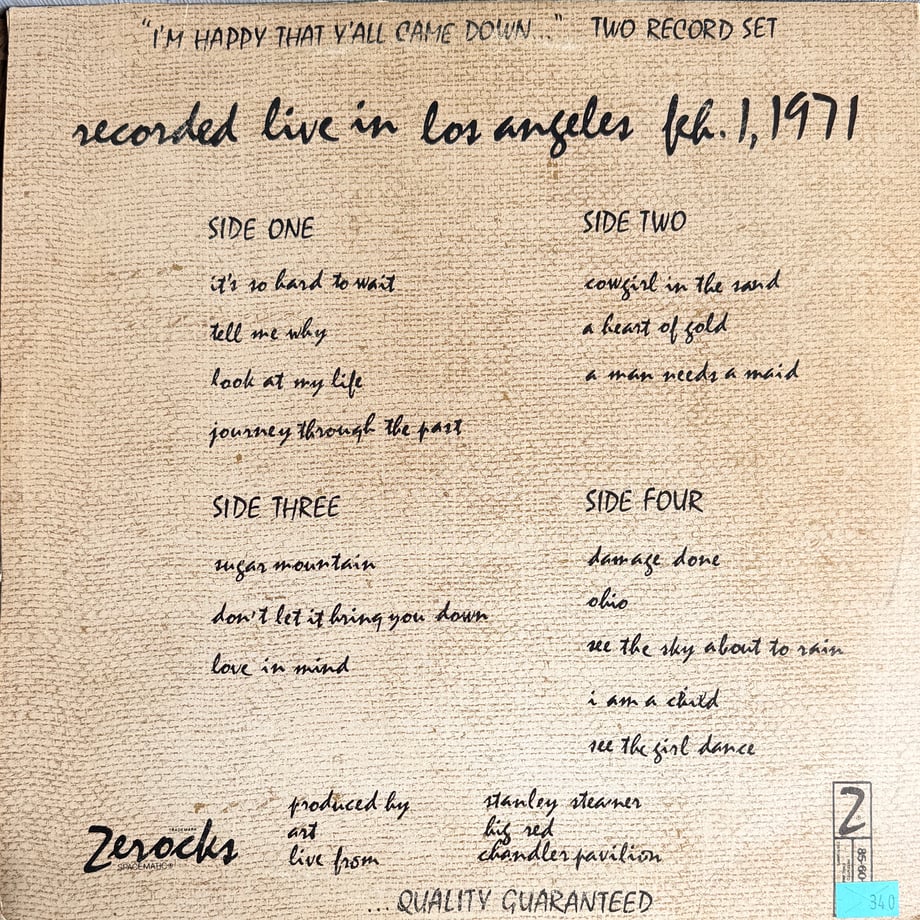 "I'M HAPPY THAT Y'ALL CAME DOWN..." TWO RECORD SET
recorded live in los angeles feb. 1, 1971
SIDE ONE
it's so hard to wait
tell me why
look at my life
journey through the past
SIDE TWO
cowgirl in the sand
a heart of gold
a man needs a maid
SIDE THREE
sugar mountain
don't let it bring you down
love in mind
SIDE FOUR
damage done
ohio
see the sky about to rain
i am a child
see the girl dance
TRADEMARK
Zerocks
SPACEMATIC®
produced by stanley steamer
art big red
live from chandler pavilion
...QUALITY GUARANTEED
Z
340